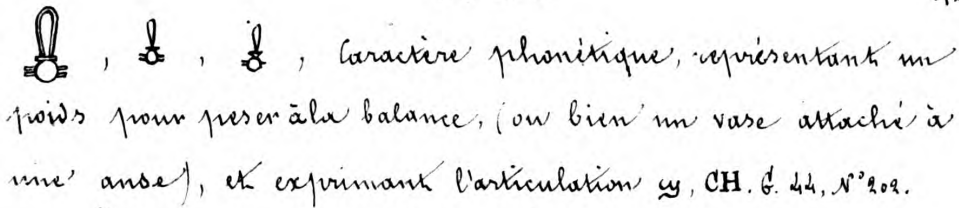 , , , Caractère phonétique, représentant un
poids pour peser à la balance, (ou bien un vase attaché à
une anse), et exprimant l'articulation ϣ, CH. G. 44, N° 202.